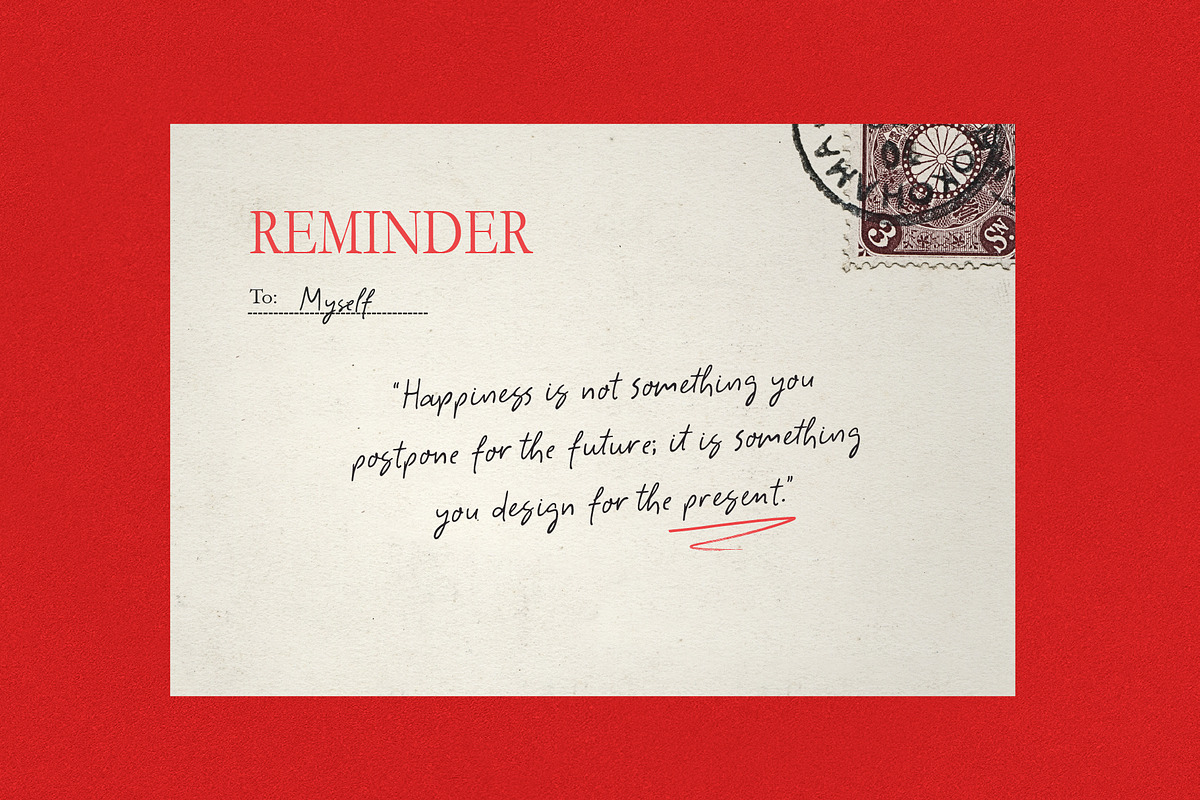 REMINDER
To: Myself
“Happiness is not something you
postpone for the future; it is something
you design for the present.”
3 Sn.